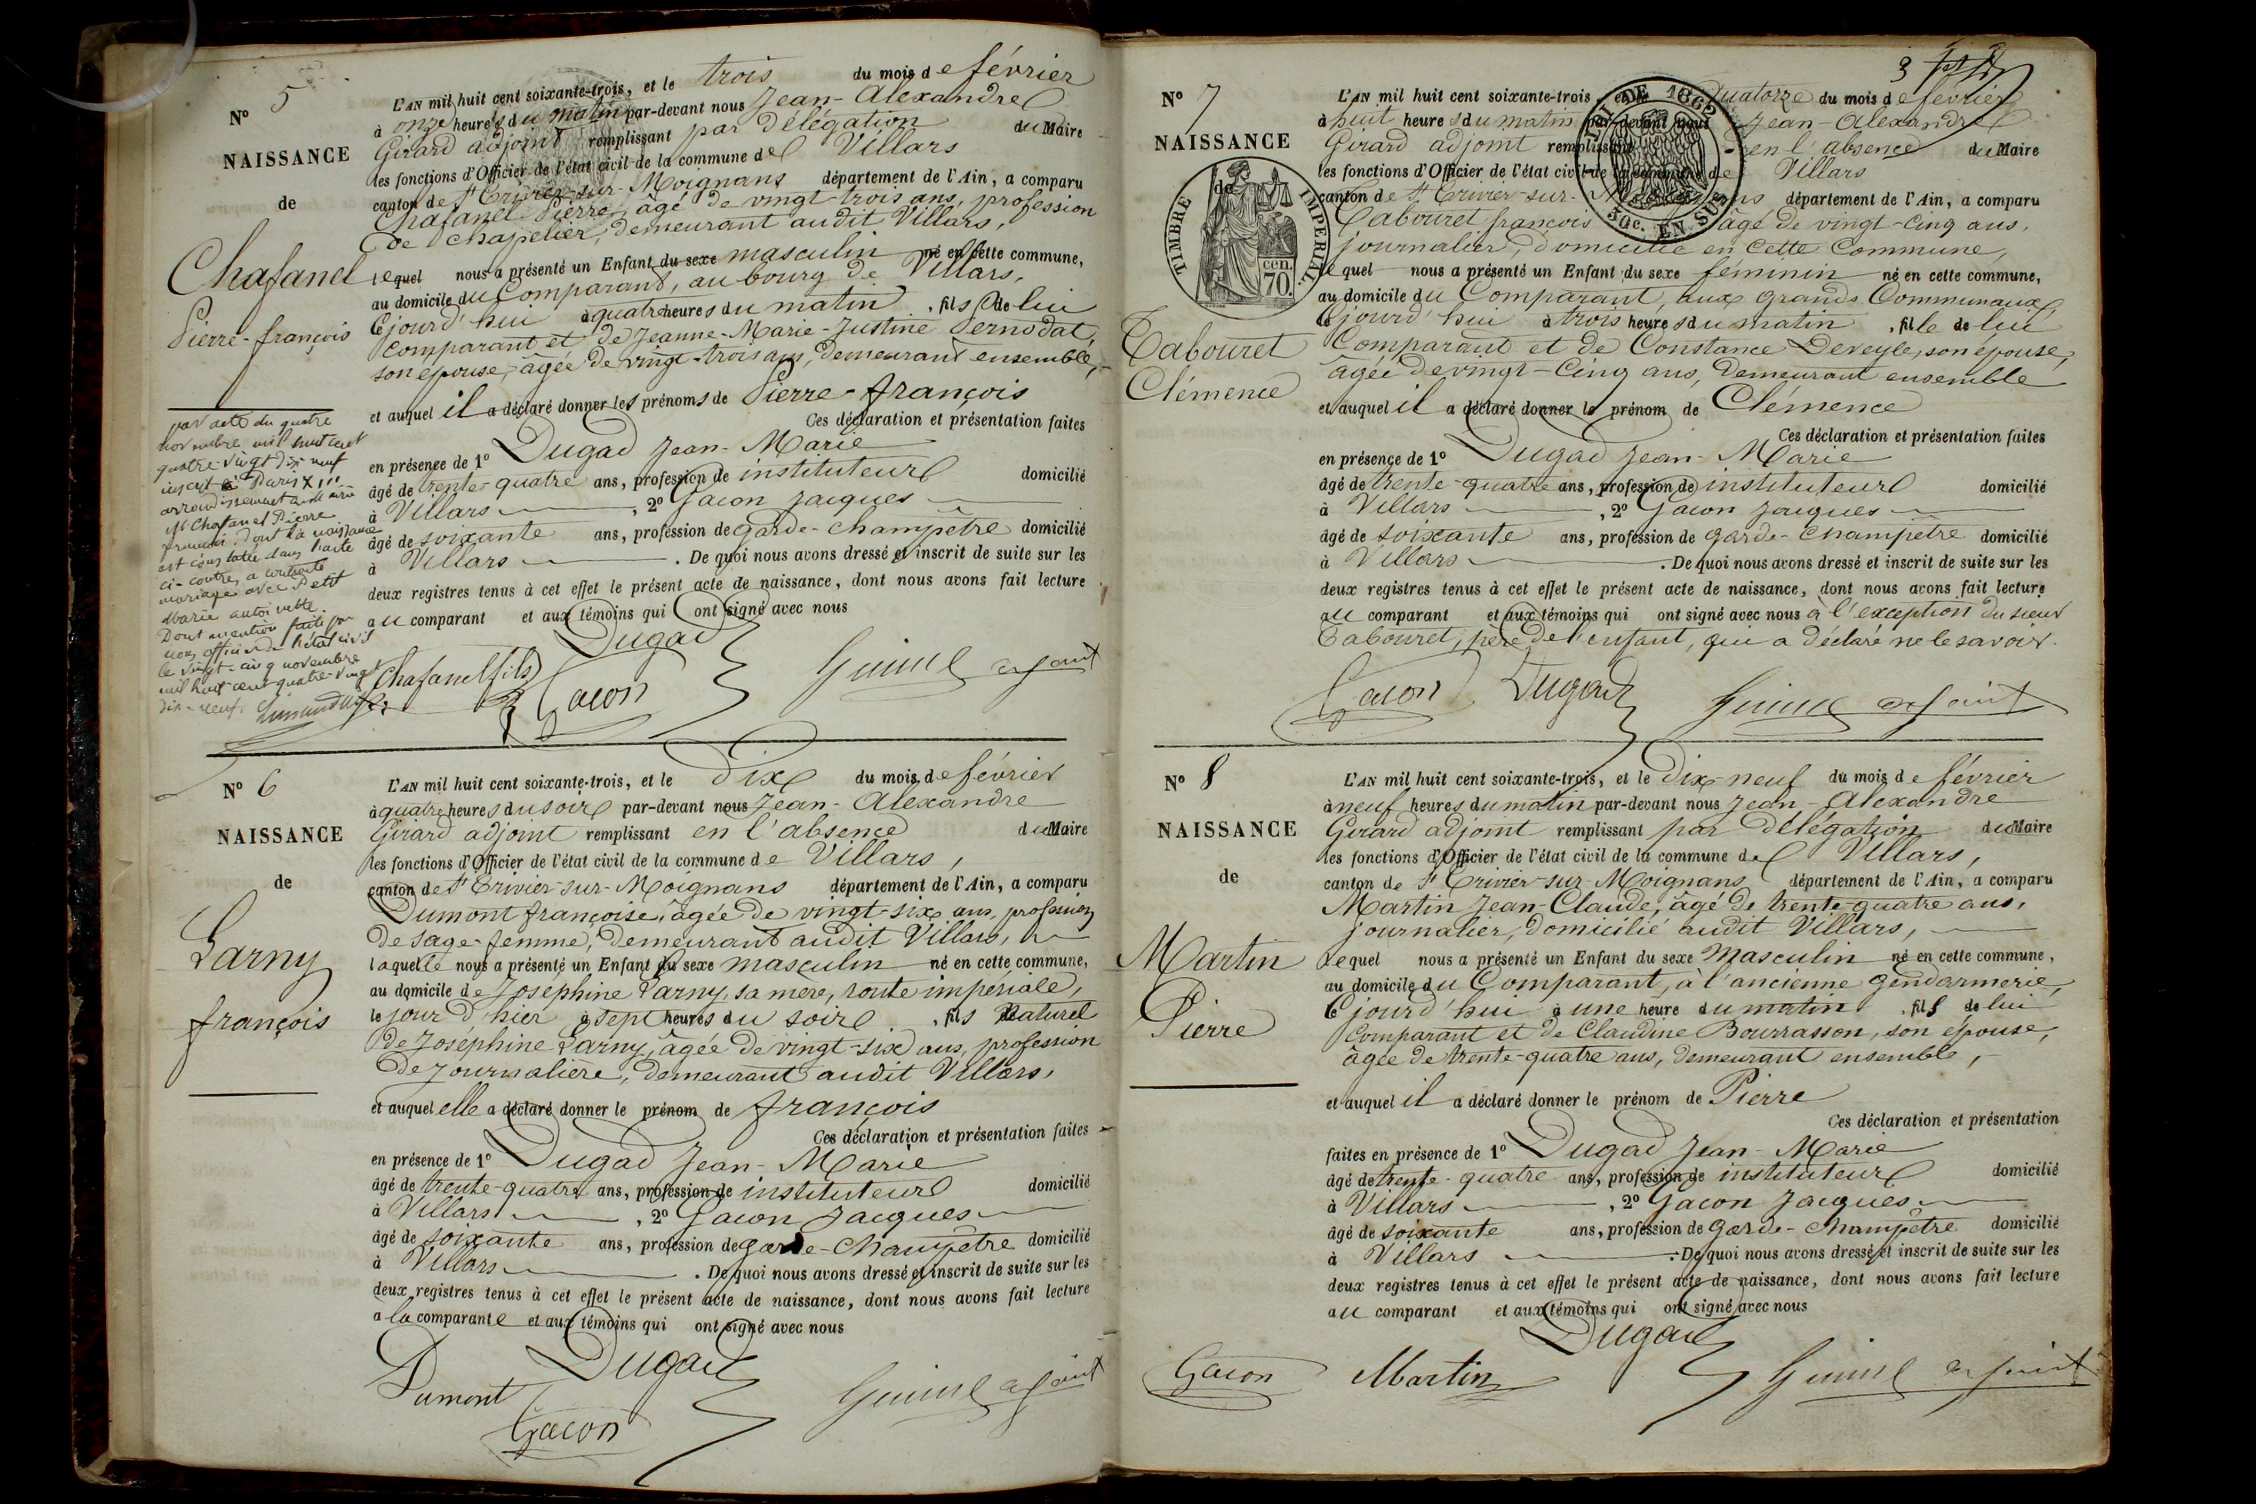 N° 5
NAISSANCE
de
Chafanel
Pierre-françois
L'AN mil huit cent soixante-trois, et le trois du mois de février
à onze heures du matin par-devant nous Jean-Alexandre
Girard adjoint remplissant par délégation du Maire
les fonctions d'Officier de l'état civil de la commune de Villars
canton de St Trivier-sur-Moignans département de l'Ain, a comparu
Chafanel Pierre, âgé de vingt trois ans, profession
de chapelier, demeurant audit Villars,
lequel nous a présenté un Enfant du sexe masculin né en cette commune,
au domicile du Comparant, au bourg de Villars,
cejourd'hui à quatre heures du matin, fils de lui
comparant et de Jeanne-Marie-Justine Pernodat,
son épouse, âgée de vingt-trois ans, demeurant ensemble,
et auquel il a déclaré donner les prénoms de Pierre-françois
Ces déclaration et présentation faites
en présence de 1° Dugad Jean-Marie
âgé de trente-quatre ans, profession de instituteur domicilié
à Villars, 2° Gacon Jacques
âgé de soixante ans, profession de garde-champêtre domicilié
à Villars. De quoi nous avons dressé et inscrit de suite sur les
deux registres tenus à cet effet le présent acte de naissance, dont nous avons fait lecture
au comparant et aux témoins qui ont signé avec nous
Dugad
Chafanel fils Gacon adjoint
par acte du quatre
novembre mil huit cent
quatre-vingt dix neuf
inscrit à Paris XIII
arrondissement
Mr Chafanel Pierre
françois dont la naissance
est constatée dans l'acte
ci-contre, a contracté
mariage avec Petit
Marie
Dont mention faite par
nous officier de l'état civil
le vingt-cinq novembre
mil huit cent quatre-vingt
dix-neuf.
N° 6
NAISSANCE
de
Larny
françois
L'AN mil huit cent soixante-trois, et le Dix du mois de février
à quatre heures du soir par-devant nous Jean-Alexandre
Girard adjoint remplissant en l'absence du Maire
les fonctions d'Officier de l'état civil de la commune de Villars,
canton de St Trivier-sur-Moignans département de l'Ain, a comparu
Dumont françoise, âgée de vingt-six ans, profession
de sage-femme, demeurant audit Villars,
laquelle nous a présenté un Enfant du sexe masculin né en cette commune,
au domicile de Joséphine Larny, sa mère, route impériale,
le jour d'hier à sept heures du soir, fils naturel
de Joséphine Larny, âgée de vingt-six ans, profession
de journalière, demeurant audit Villars,
et auquel elle a déclaré donner le prénom de françois
Ces déclaration et présentation faites
en présence de 1° Dugad Jean-Marie
âgé de trente-quatre ans, profession de instituteur domicilié
à Villars, 2° Gacon Jacques
âgé de soixante ans, profession de garde-champêtre domicilié
à Villars. De quoi nous avons dressé et inscrit de suite sur les
deux registres tenus à cet effet le présent acte de naissance, dont nous avons fait lecture
a la comparante et aux témoins qui ont signé avec nous
Dumont Dugad adjoint
Gacon
3
N° 7
NAISSANCE
de
TIMBRE IMPERIAL.
cen.
70.
LOI DE 1862
50c. EN SUS
Tabouret
Clémence
L'AN mil huit cent soixante-trois, et le Quatorze du mois de février
à huit heures du matin par-devant nous Jean-Alexandre
Girard adjoint remplissant en l'absence du Maire
les fonctions d'Officier de l'état civil de la commune de Villars
canton de St Trivier-sur-Moignans département de l'Ain, a comparu
Tabouret françois âgé de vingt-cinq ans,
journalier, domicilié en cette commune,
lequel nous a présenté un Enfant du sexe féminin né en cette commune,
au domicile du Comparant, aux grands Communaux,
cejourd'hui à trois heures du matin, fille de lui
Comparant et de Constance Deveyle, son épouse,
âgée de vingt-cinq ans, demeurant ensemble
et auquel il a déclaré donner le prénom de Clémence
Ces déclaration et présentation faites
en présence de 1° Dugad Jean-Marie
âgé de trente-quatre ans, profession de instituteur domicilié
à Villars, 2° Gacon Jacques
âgé de soixante ans, profession de garde-champêtre domicilié
à Villars. De quoi nous avons dressé et inscrit de suite sur les
deux registres tenus à cet effet le présent acte de naissance, dont nous avons fait lecture
au comparant et aux témoins qui ont signé avec nous à l'exception du sieur
Tabouret, père de l'enfant, qui a déclaré ne le savoir.
Gacon Dugad adjoint
N° 8
NAISSANCE
de
Martin
Pierre
L'AN mil huit cent soixante-trois, et le Dix-neuf du mois de février
à neuf heures du matin par-devant nous Jean-Alexandre
Girard adjoint remplissant par délégation du Maire
les fonctions d'Officier de l'état civil de la commune de Villars,
canton de St Trivier-sur-Moignans département de l'Ain, a comparu
Martin Jean-Claude, âgé de trente-quatre ans,
journalier, domicilié audit Villars,
lequel nous a présenté un Enfant du sexe Masculin né en cette commune,
au domicile du Comparant, à l'ancienne gendarmerie,
cejourd'hui à une heure du matin, fils de lui
comparant et de Claudine Bourrasson, son épouse,
âgée de trente-quatre ans, demeurant ensemble,
et auquel il a déclaré donner le prénom de Pierre
Ces déclaration et présentation
faites en présence de 1° Dugad Jean-Marie
âgé de trente-quatre ans, profession de instituteur domicilié
à Villars, 2° Gacon Jacques
âgé de soixante ans, profession de garde-champêtre domicilié
à Villars. De quoi nous avons dressé et inscrit de suite sur les
deux registres tenus à cet effet le présent acte de naissance, dont nous avons fait lecture
au comparant et aux témoins qui ont signé avec nous
Dugad
Gacon Martin adjoint